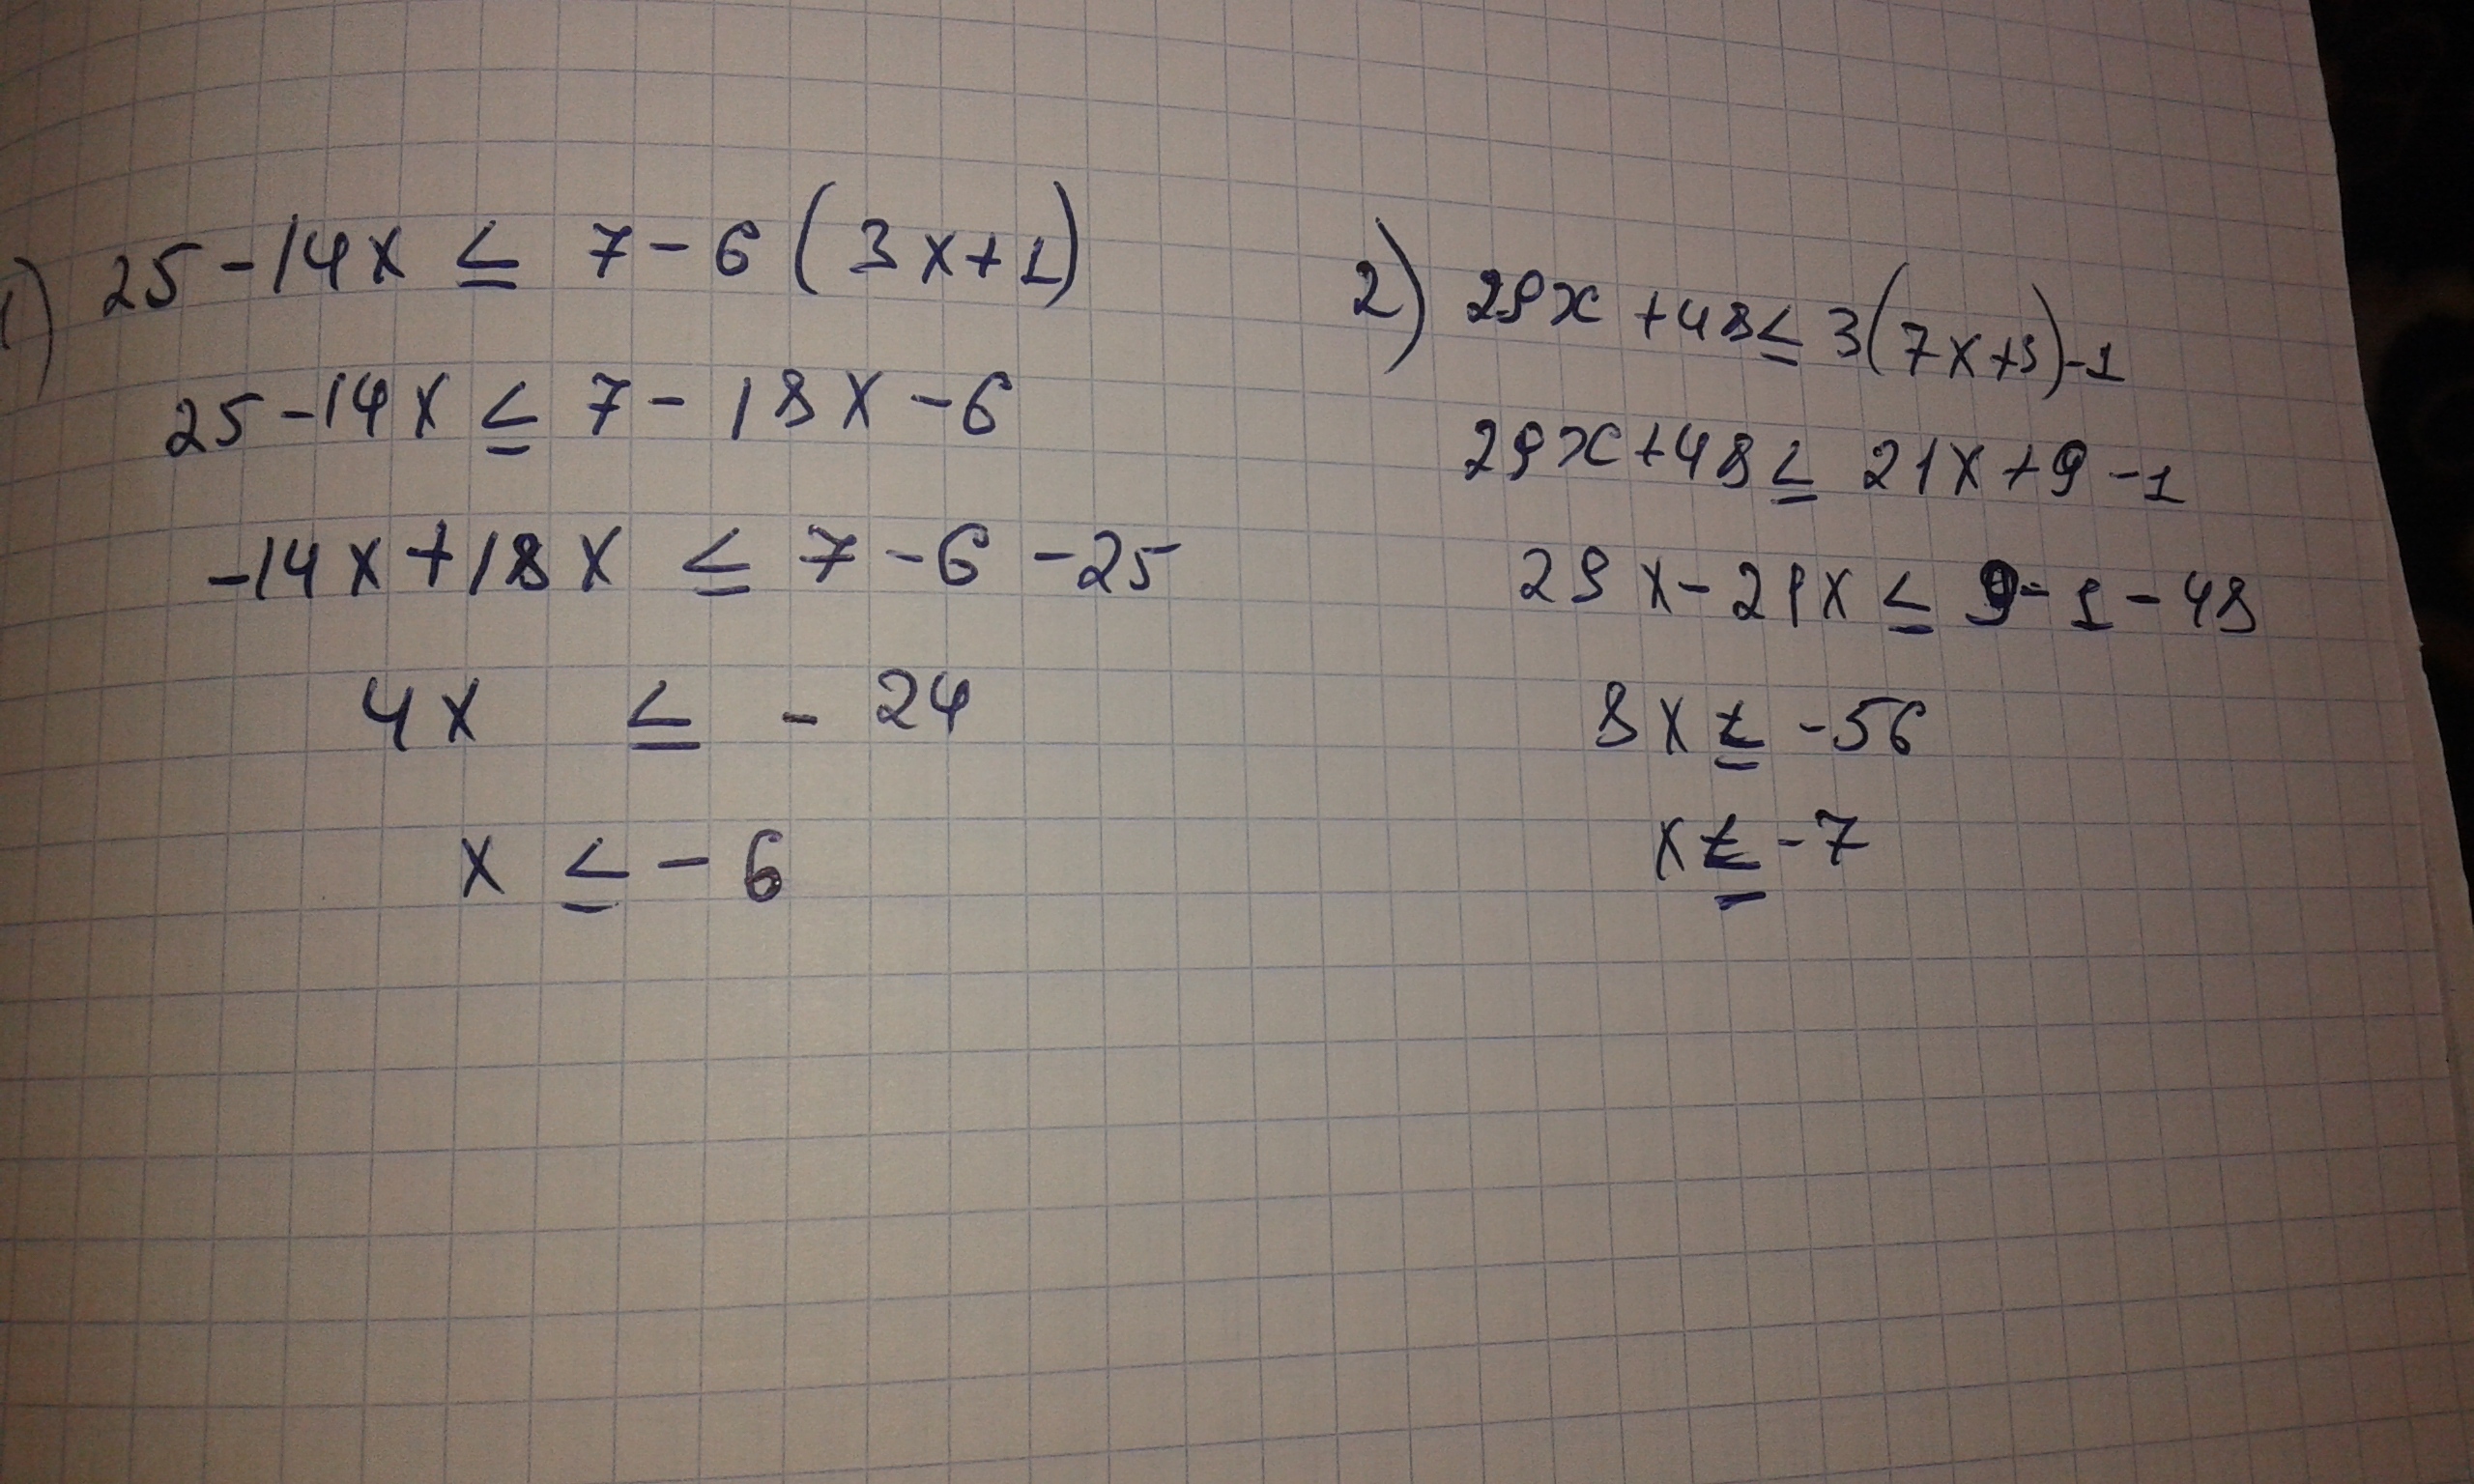 1) 25 - 14x ≤ 7 - 6 (3x+1)
25 - 14x ≤ 7 - 18x - 6
-14x + 18x ≤ 7 - 6 - 25
4x ≤ - 24
x ≤ - 6
2) 29x + 48 ≤ 3(7x+3)-1
29x + 48 ≤ 21x + 9 - 1
29x - 21x ≤ 9 - 1 - 48
8x ≤ -56
x ≤ -7